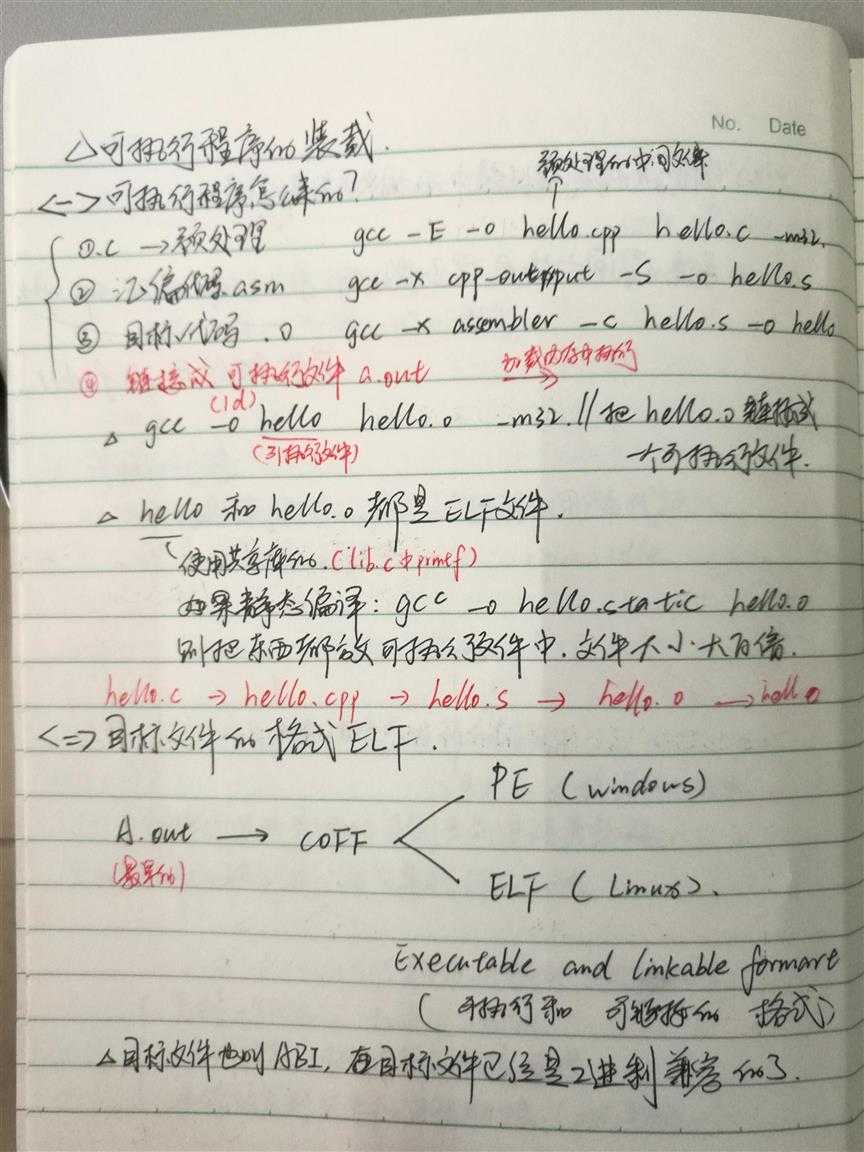 No. Date
△可执行程序的装载.
<一>可执行程序怎么来的?
预处理的中间文件
↑
①.c →预处理 gcc -E -o hello.cpp hello.c -m32.
② 汇编代码.asm gcc -x cpp-output -S -o hello.s
③ 目标代码.o gcc -x assembler -c hello.s -o hello
④ 链接成 可执行文件 a.out 加载内存中执行
(ld)
△ gcc -o hello hello.o -m32. // 把 hello.o 链接成
(可执行文件) 一个可执行文件.
△ hello 和 hello.o 都是 ELF文件.
使用共享库的.(lib.c中printf)
如果静态编译: gcc -o hello.static hello.o
则把东西都放可执行文件中.文件大小大百倍.
hello.c → hello.cpp → hello.s → hello.o → hello
<二>目标文件的格式ELF.
PE (windows)
A.out → COFF
(最早的)
ELF (Linux).
Executable and linkable formart
(可执行和 可链接的 格式)
△目标文件也叫ABI, 在目标文件已经是2进制兼容的了.